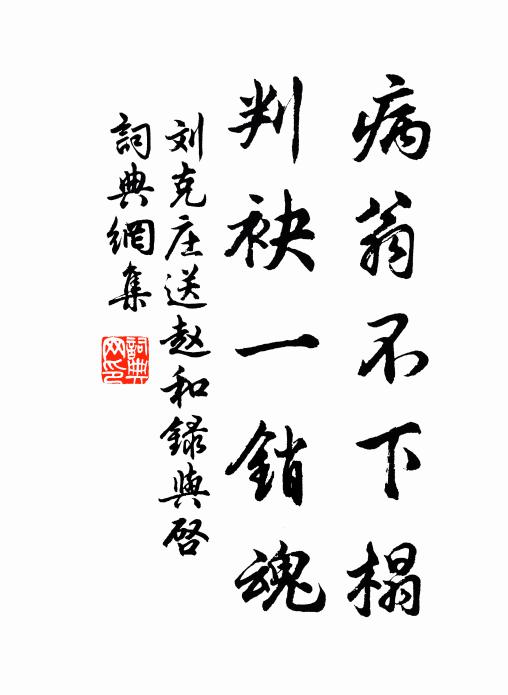 病翁不下榻
判袂一銷魂
刘克庄送赵和録與啓
詞典網集
詞典网印